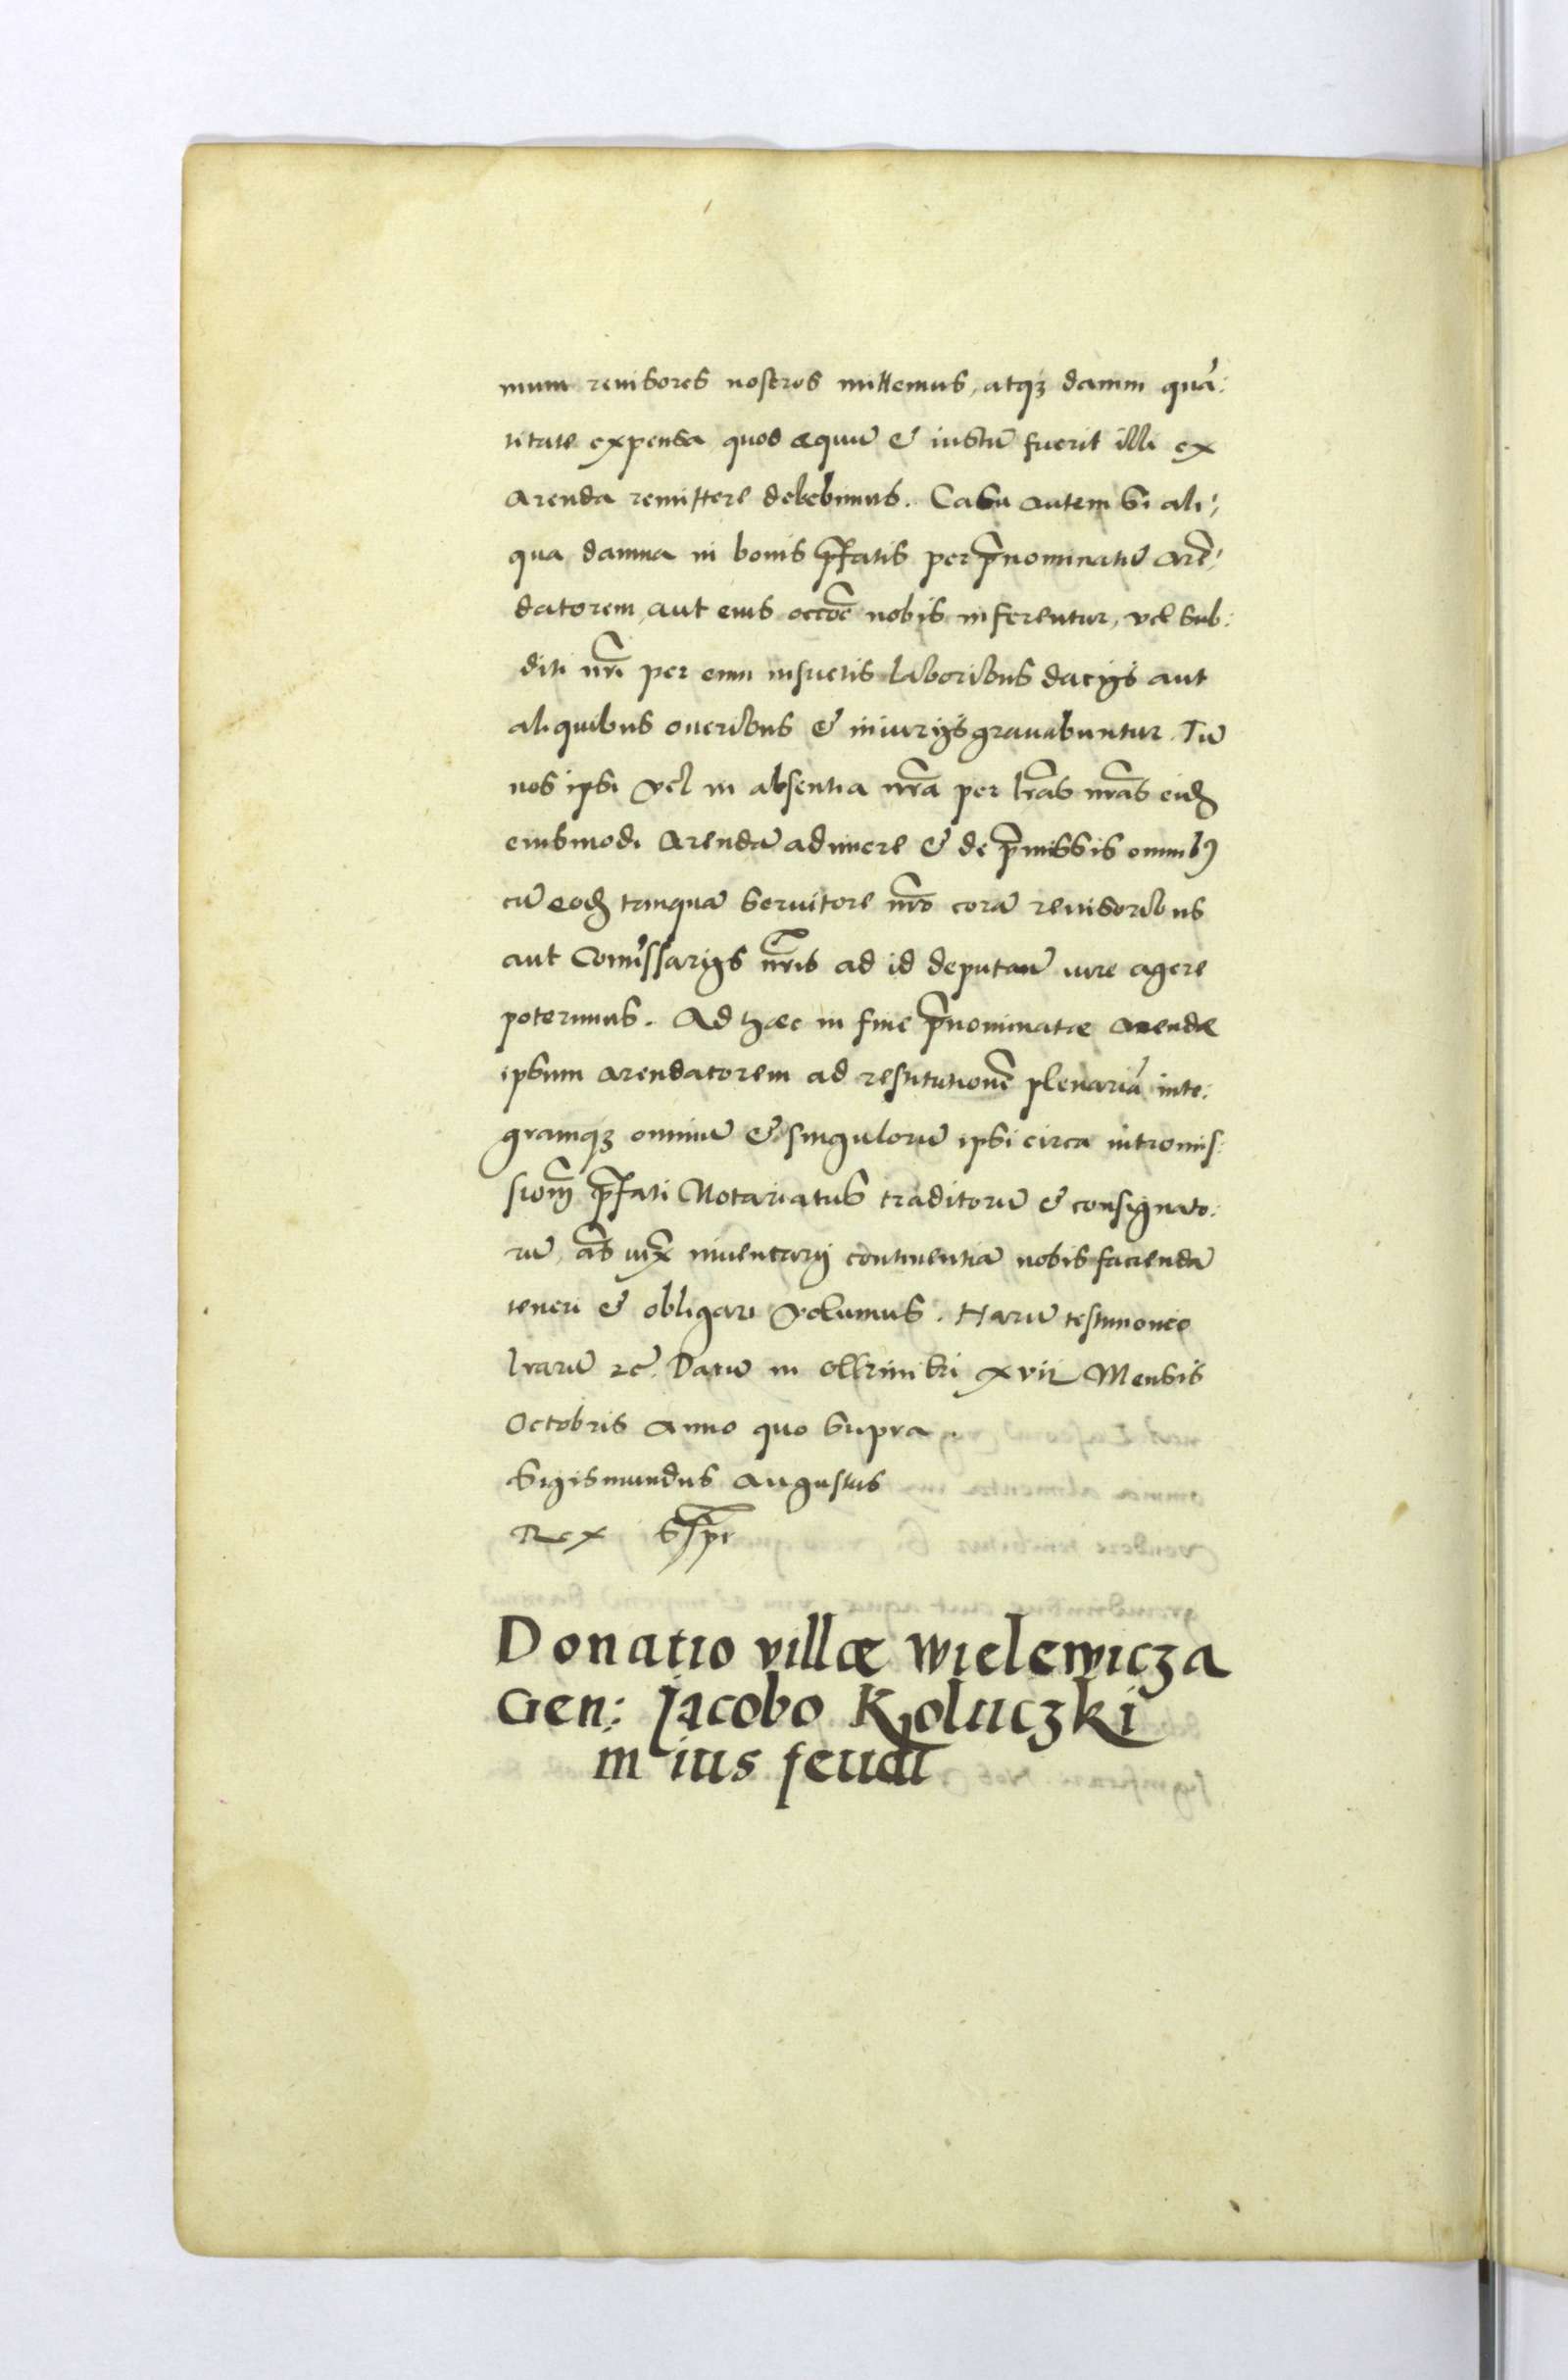 mum reuisores nostros mittemus, atqz damni quã:
titate expensa quod aequũ & iustũ fuerit illi ex
arenda remittere debebimus. Casu autem si ali:
qua damna in bonis p̃fatis per p̃nominatũ arẽ:
datorem, aut eius occõe nobis inferentur, vel sub:
diti nr̃i per eum insuetis laboribus dacijs aut
aliquibus oneribus & iniurijs grauabuntur. Tũ
nos ipsi vel in absentia nr̃a per lr̃as nr̃as eid
eiusmodi arendã adimere & de p̃missis omnib9
cũ eod tanquã seruitore nr̃o corã reuisoribus
aut Com̃issarijs nr̃is ad id deputan̄ iure agere
poterimus. Ad haec in fine p̃nominatae arendae
ipsum arendatorem ad restitutionẽ plenariã inte:
gramqz omniũ & singulorũ ipsi circa intromis:
siom̃ p̃fati Notariatus traditorũ & consignato:
rũ, ãs iux̃ inuentarij continentiã nobis faciendã
teneri & obligari volumus. Harũ testimonio
lrarũ zc̃. Datũ in xvii Mensis
Octobris anno quo supra.
Sigismundus Augustus
Rex sspr̃
Donatio villae Wielewicza
Gen: Jacobo Koluczki
in ius feudi